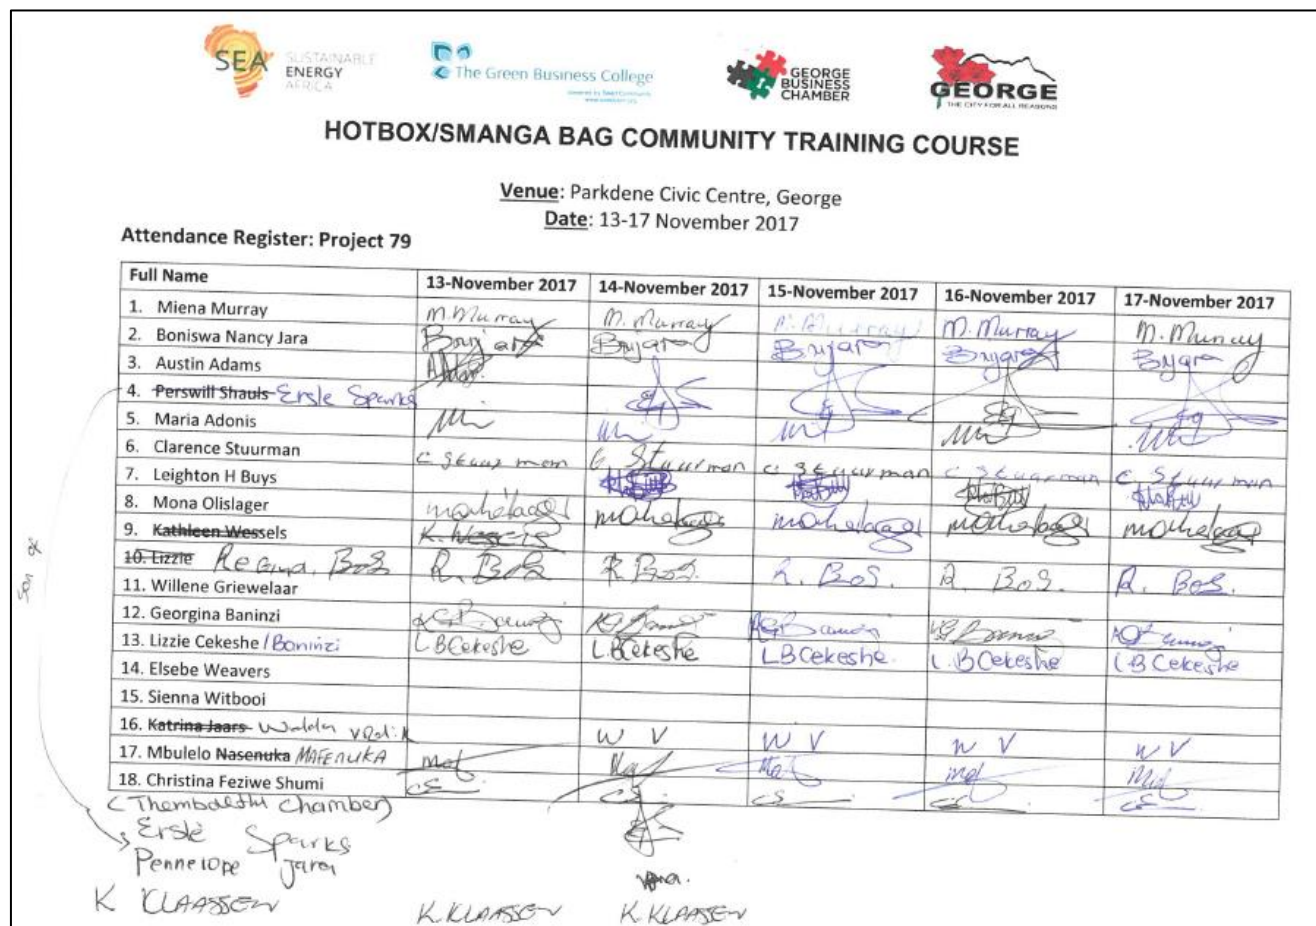 SEA SUSTAINABLE ENERGY AFRICA
The Green Business College
GEORGE BUSINESS CHAMBER
GEORGE
THE CITY FOR ALL REASONS
HOTBOX/SMANGA BAG COMMUNITY TRAINING COURSE
Venue: Parkdene Civic Centre, George
Date: 13-17 November 2017
Attendance Register: Project 79
Full Name 13-November 2017 14-November 2017 15-November 2017 16-November 2017 17-November 2017
1. Miena Murray M. Murray M. Murray M. Murray M. Murray M. Murray
2. Boniswa Nancy Jara
3. Austin Adams
4. Perswill Shauls Ersle Sparks
5. Maria Adonis
6. Clarence Stuurman C Stuurman C Stuurman C Stuurman C Stuurman C Stuurman
7. Leighton H Buys
8. Mona Olislager
9. Kathleen Wessels K. Wessels
10. Lizzie Regina. BoS R. BoS R BoS. R. BoS. R. BoS. R. BoS.
11. Willene Griewelaar
12. Georgina Baninzi
13. Lizzie Cekeshe / Baninzi LBCekeshe L.BCekeshe LBCekeshe. L.BCekeshe L B Cekeshe
14. Elsebe Weavers
15. Sienna Witbooi
16. Katrina Jaars W V W V W V W V
17. Mbulelo Nasenuka MAFENUKA
18. Christina Feziwe Shumi
(Thembalethu Chamber)
Ersle Sparks
Pennelope Jara
K KLAASSEN K.KLAASSEN K.KLAASSEN